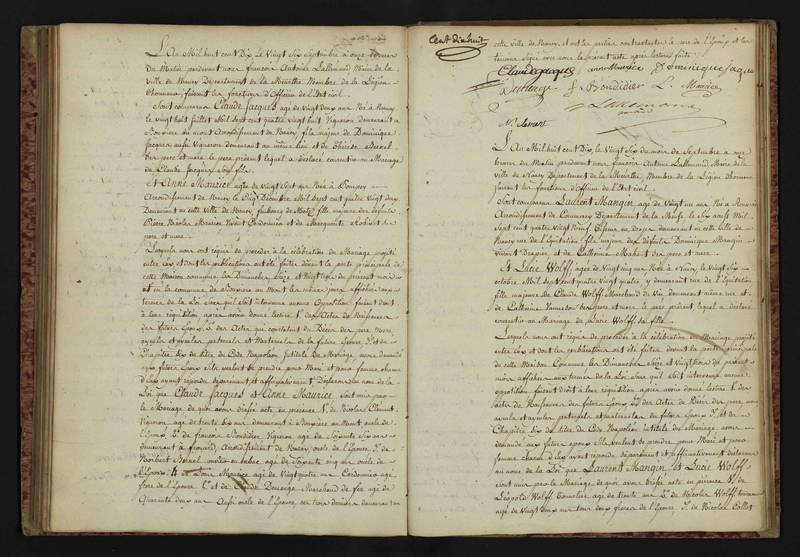 L'An Mil huit cent Dix, le Vingt Six Septembre à onze heures
du Matin pardevant nous françois Antoine Lallemand Maire de la
Ville de Nancy Département de la Meurthe Membre de la Légion
d'honneur faisant les fonctions d'Officier de l'Etat civil.
Sont comparus Claude Jacques agé de Vingt deux ans Né à
le Vingt huit juillet Mil Sept cent quatre Vingt huit Vigneron demeurant à
Bouxière au mont Arrondissement de Nancy fils majeur de Dominique
Jacques aussi Vigneron demeurant au même lieu et de Thérèse
Ses pere et mere le pere présent lequel a déclaré consentir au Mariage
de Claude Jacques Son fils
Et Anne Maurice agée de Vingt Sept ans Née à Pompey
Arrondissement de Nancy le Décembre Mil Sept cent quatre Vingt deux
Demeurant en cette Ville de Nancy, faubourg de Metz fille majeure des défunts
Pierre Nicolas Maurice Vivant Cordonnier et de Marguerite
pere et mere
Lesquels nous ont requis de procéder à la célébration du Mariage projetté
entre eux et dont les publications ont été faites devant la porte principale de
cette Maison commune les Dimanches Seize et Vingt trois du présent mois
et en la commune de Bouxière au Mont les mêmes jours affichées aux
termes de la Loi Sans qu'il Soit intervenu aucune Opposition faisant droit
à leur réquisition après avoir donné lecture 1° des Actes de Naissance
des futurs Epoux 2° des Actes qui constatent du Décès des pere mere
ayeuls et ayeules paternels et Maternels de la future Epouse 3° et du
Chapitre Six du titre du Code Napoléon intitulé du Mariage avons demandé
aux futurs Epoux S'ils veulent Se prendre pour Mari et pour femme chacun
d'eux ayant répondu Séparément et affirmativement Déclarons au nom de la
Loi que Claude Jacques et Anne Maurice Sont unis par
le Mariage de quoi avons dressé acte en présence 1° de Nicolas
Vigneron agé de trente ans demeurant à Bouxière au Mont oncle de
l'Epoux 2° de françois Bondidier Vigneron agé de Soixante
demeurant à frouard, Arrondissement de Nancy oncle de l'Epouse 3° de
agé de Soixante cinq ans oncle de
l'Epouse 4° Maurice agé de Vingt quatre ans Cordonnier
frere de l'Epouse Marchand de fer agé de
Quarante deux ans Aussi oncle de l'Epouse ces trois derniers demeurant en
Cent Dix huit
cette ville de Nancy, et ont les parties contractantes le pere de l'Epoux et les
témoins Signé avec nous le présent acte après lecture faite
Claude Jacques anne Maurice Dominique Jaque
f Bondidier L. Maurice
Lallemand
L'An Mil huit cent Dix, le Vingt Six du mois de Septembre à onze
heures du Matin pardevant nous françois Antoine Lallemand Maire de la
Ville de Nancy Département de la Meurthe, Membre de la Légion d'honneur
faisant les fonctions d'Officier de l'Etat civil
Sont comparus Laurent Mangin agé de Vingt un ans Né à
Arrondissement de Commercy Département de la Meuse, le Six août Mil
Sept cent quatre Vingt Neuf, en draps demeurant en cette ville de
Nancy rue de fils majeur des défunts Dominique Mangin
Vivant Drapier, et de Catherine Mahut Ses pere et mere
Et Lucie Wolff, agée de Vingt cinq ans Née à Nancy, le Vingt Six
octobre Mil Sept cent quatre Vingt quatre, y demeurant rue de
fille majeure de Claude Wolff Marchand de Vin, demeurant même rue et
de Catherine Ses pere et mere, le pere présent lequel a déclaré
consentir au Mariage de Lucie Wolff Sa fille
Lesquels nous ont requis de procéder à la célébration du Mariage projetté
entre eux et dont les publications ont été faites devant la porte principale
de cette Maison Commune les Dimanches Seize et Vingt trois du présent
mois affichées aux termes de la Loi Sans qu'il Soit intervenu aucune
opposition faisant droit à leur réquisition, après avoir donné lecture 1° des
actes de Naissance des futurs Epoux 2° des Actes de Décès des pere mere
ayeuls et ayeules paternels et maternels du futur Epoux 3° et du
Chapitre Six du titre du Code Napoléon intitulé du Mariage avons
demandé aux futurs époux S'ils veulent Se prendre pour Mari et pour
femme chacun d'eux ayant répondu Séparément et affirmativement déclarons
au nom de la Loi que Laurent Mangin et Lucie Wolff
Sont unis par le Mariage de quoi avons dressé acte en présence 1° de
Léopold Wolff Tonnelier agé de trente ans 2° de Nicolas Wolff
agé de Vingt deux ans tous deux freres de l'Epouse 3° de Nicolas Collet